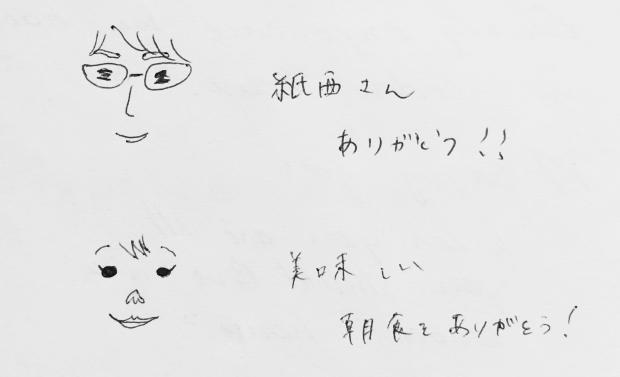 紙西さん
ありがとう!!
美味しい
朝食をありがとう!